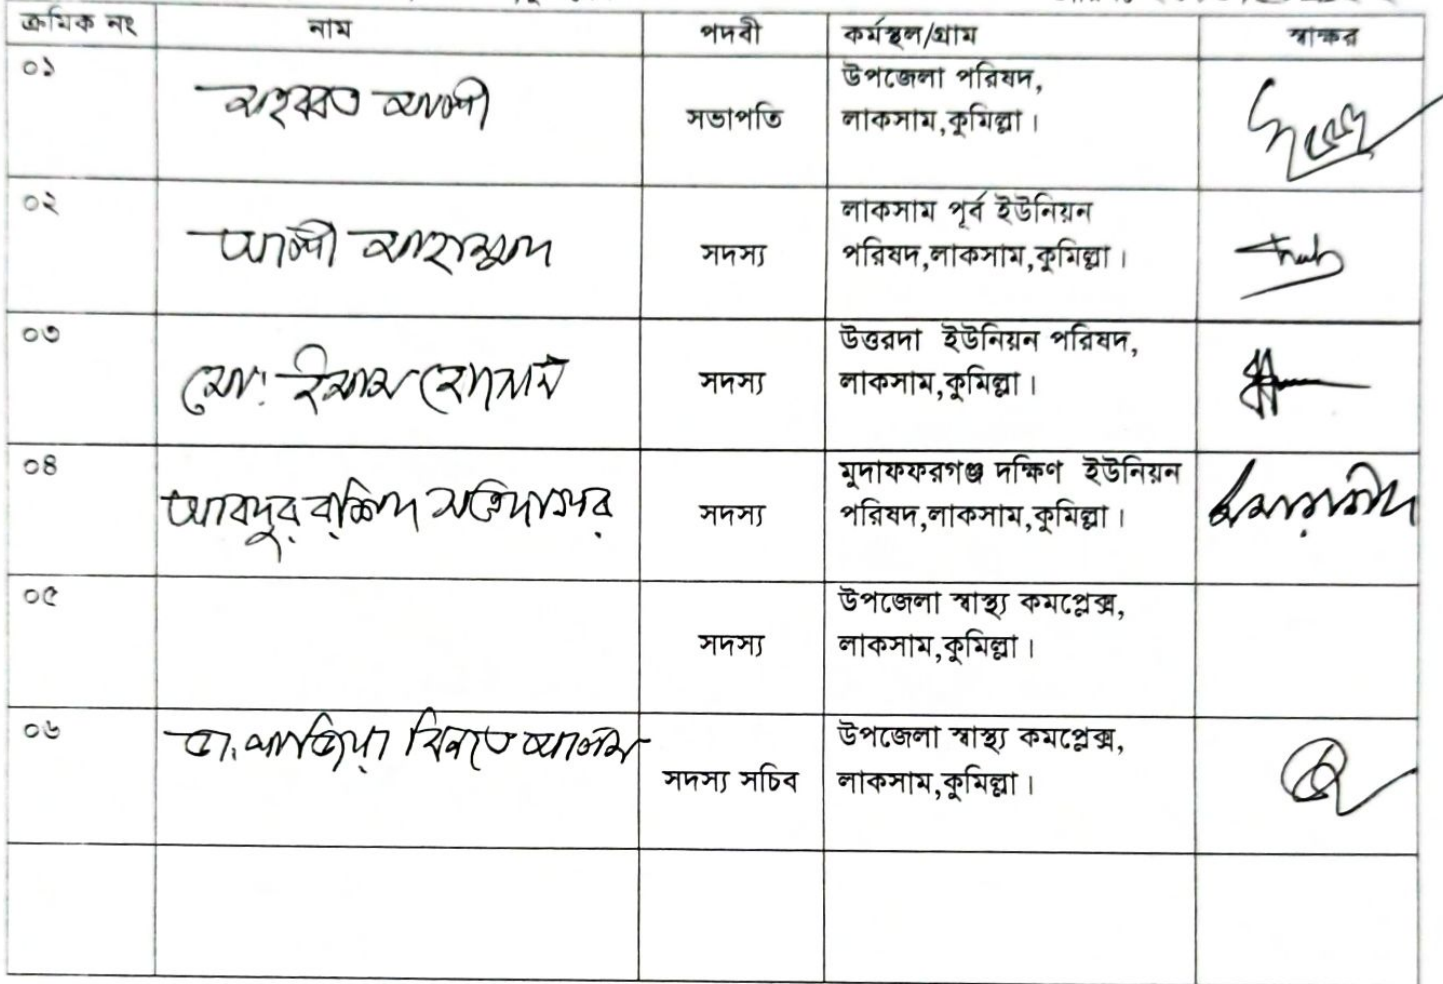 ক্রমিক নং নাম পদবী কর্মস্থল/গ্রাম স্বাক্ষর
০১ মহব্বত আলী সভাপতি উপজেলা পরিষদ,
লাকসাম,কুমিল্লা।
০২ আলী আহাম্মদ সদস্য লাকসাম পূর্ব ইউনিয়ন
পরিষদ,লাকসাম,কুমিল্লা।
০৩ মো: ইমাম হোসাইন সদস্য উত্তরদা ইউনিয়ন পরিষদ,
লাকসাম,কুমিল্লা।
০৪ আবদুর রশিদ সদস্য মুদাফফরগঞ্জ দক্ষিণ ইউনিয়ন
পরিষদ,লাকসাম,কুমিল্লা।
০৫ সদস্য উপজেলা স্বাস্থ্য কমপ্লেক্স,
লাকসাম,কুমিল্লা।
০৬ ডা. নাজিয়া বিনতে আলম সদস্য সচিব উপজেলা স্বাস্থ্য কমপ্লেক্স,
লাকসাম,কুমিল্লা।